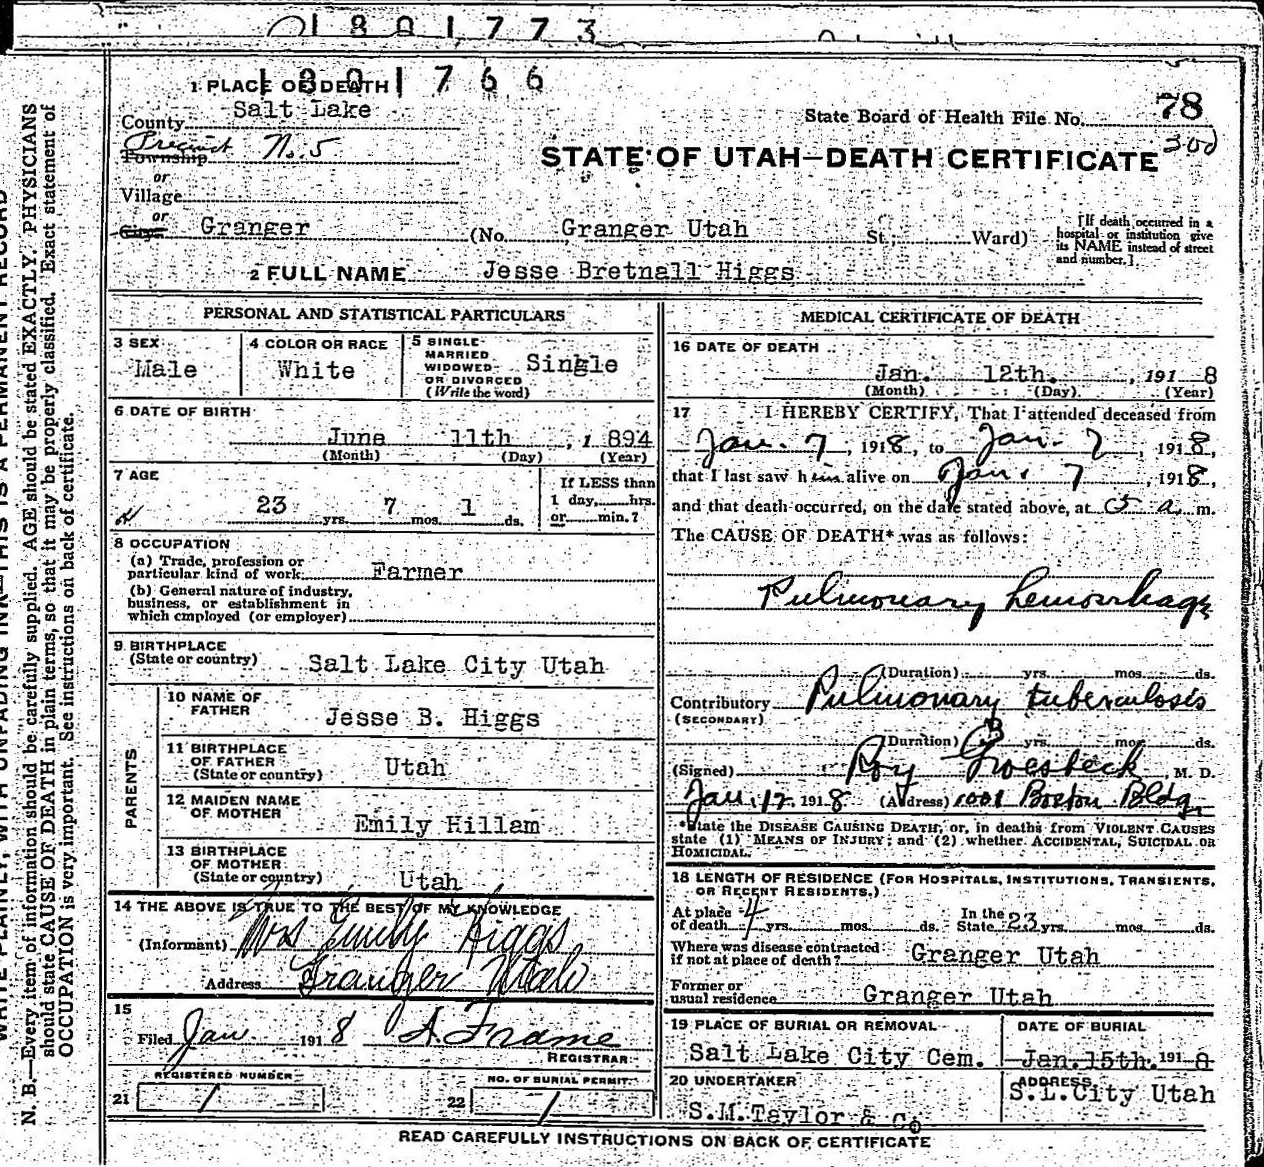 1801773
1801766
1 PLACE OF DEATH
County Salt Lake
State Board of Health File No. 78
300
Precinct No. 5
Township
or
Village
STATE OF UTAH—DEATH CERTIFICATE
or
City Granger (No. Granger Utah St.; Ward)
[If death occurred in a hospital or institution give its NAME instead of street and number.]
2 FULL NAME Jesse Bretnall Higgs
PERSONAL AND STATISTICAL PARTICULARS
3 SEX
Male
4 COLOR OR RACE
White
5 SINGLE
MARRIED
WIDOWED
OR DIVORCED
(Write the word)
Single
6 DATE OF BIRTH
June 11th, 1894
(Month) (Day) (Year)
7 AGE
23 yrs. 7 mos. 1 ds.
If LESS than
1 day, hrs.
or min.?
8 OCCUPATION
(a) Trade, profession or
particular kind of work Farmer
(b) General nature of industry,
business, or establishment in
which employed (or employer)
9 BIRTHPLACE
(State or country) Salt Lake City Utah
PARENTS
10 NAME OF
FATHER Jesse B. Higgs
11 BIRTHPLACE
OF FATHER
(State or country) Utah
12 MAIDEN NAME
OF MOTHER Emily Hillam
13 BIRTHPLACE
OF MOTHER
(State or country) Utah
14 THE ABOVE IS TRUE TO THE BEST OF MY KNOWLEDGE
(Informant) Mrs Emily Higgs
Address Granger Utah
15
Filed Jan 1918 A Frame
REGISTRAR
REGISTERED NUMBER
21 1
NO. OF BURIAL PERMIT
22 1
MEDICAL CERTIFICATE OF DEATH
16 DATE OF DEATH
Jan. 12th., 1918
(Month) (Day) (Year)
17 I HEREBY CERTIFY, That I attended deceased from
Jan. 7, 1918, to Jan. 7, 1918,
that I last saw him alive on Jan. 7, 1918,
and that death occurred, on the date stated above, at 5 a. m.
The CAUSE OF DEATH* was as follows:
Pulmonary hemorrhage
(Duration) yrs. mos. ds.
Contributory Pulmonary tuberculosis
(SECONDARY)
(Duration) yrs. mos. ds.
(Signed) Roy Groesbeck, M. D.
Jan. 12, 1918 (Address) 1001 Boston Bldg.
*State the DISEASE CAUSING DEATH, or, in deaths from VIOLENT CAUSES
state (1) MEANS OF INJURY; and (2) whether ACCIDENTAL, SUICIDAL OR
HOMICIDAL.
18 LENGTH OF RESIDENCE (FOR HOSPITALS, INSTITUTIONS, TRANSIENTS,
OR RECENT RESIDENTS.)
At place
of death 4 yrs. mos. ds. In the
State 23 yrs. mos. ds.
Where was disease contracted
if not at place of death? Granger Utah
Former or
usual residence Granger Utah
19 PLACE OF BURIAL OR REMOVAL
Salt Lake City Cem.
DATE OF BURIAL
Jan. 15th. 1918
20 UNDERTAKER
S.M. Taylor & Co
ADDRESS
S.L. City Utah
READ CAREFULLY INSTRUCTIONS ON BACK OF CERTIFICATE
N. B.—Every item of information should be carefully supplied. AGE should be stated EXACTLY. PHYSICIANS
should state CAUSE OF DEATH in plain terms, so that it may be properly classified. Exact statement of
OCCUPATION is very important. See instructions on back of certificate.